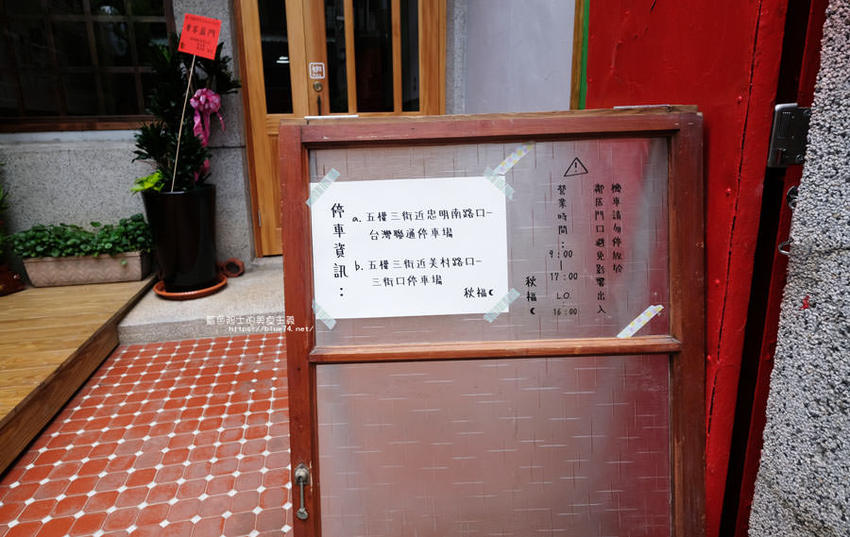 停車資訊：
a. 五權三街近忠明南路口-
台灣聯通停車場
b. 五權三街近美村路口-
三街口停車場
秋福
機車請勿停放於
鄰居門口避免影響出入
營業時間：
9:00
|
17:00
L.O.
16:00
秋福
藍色起士的美食主義
https://blue74.net/